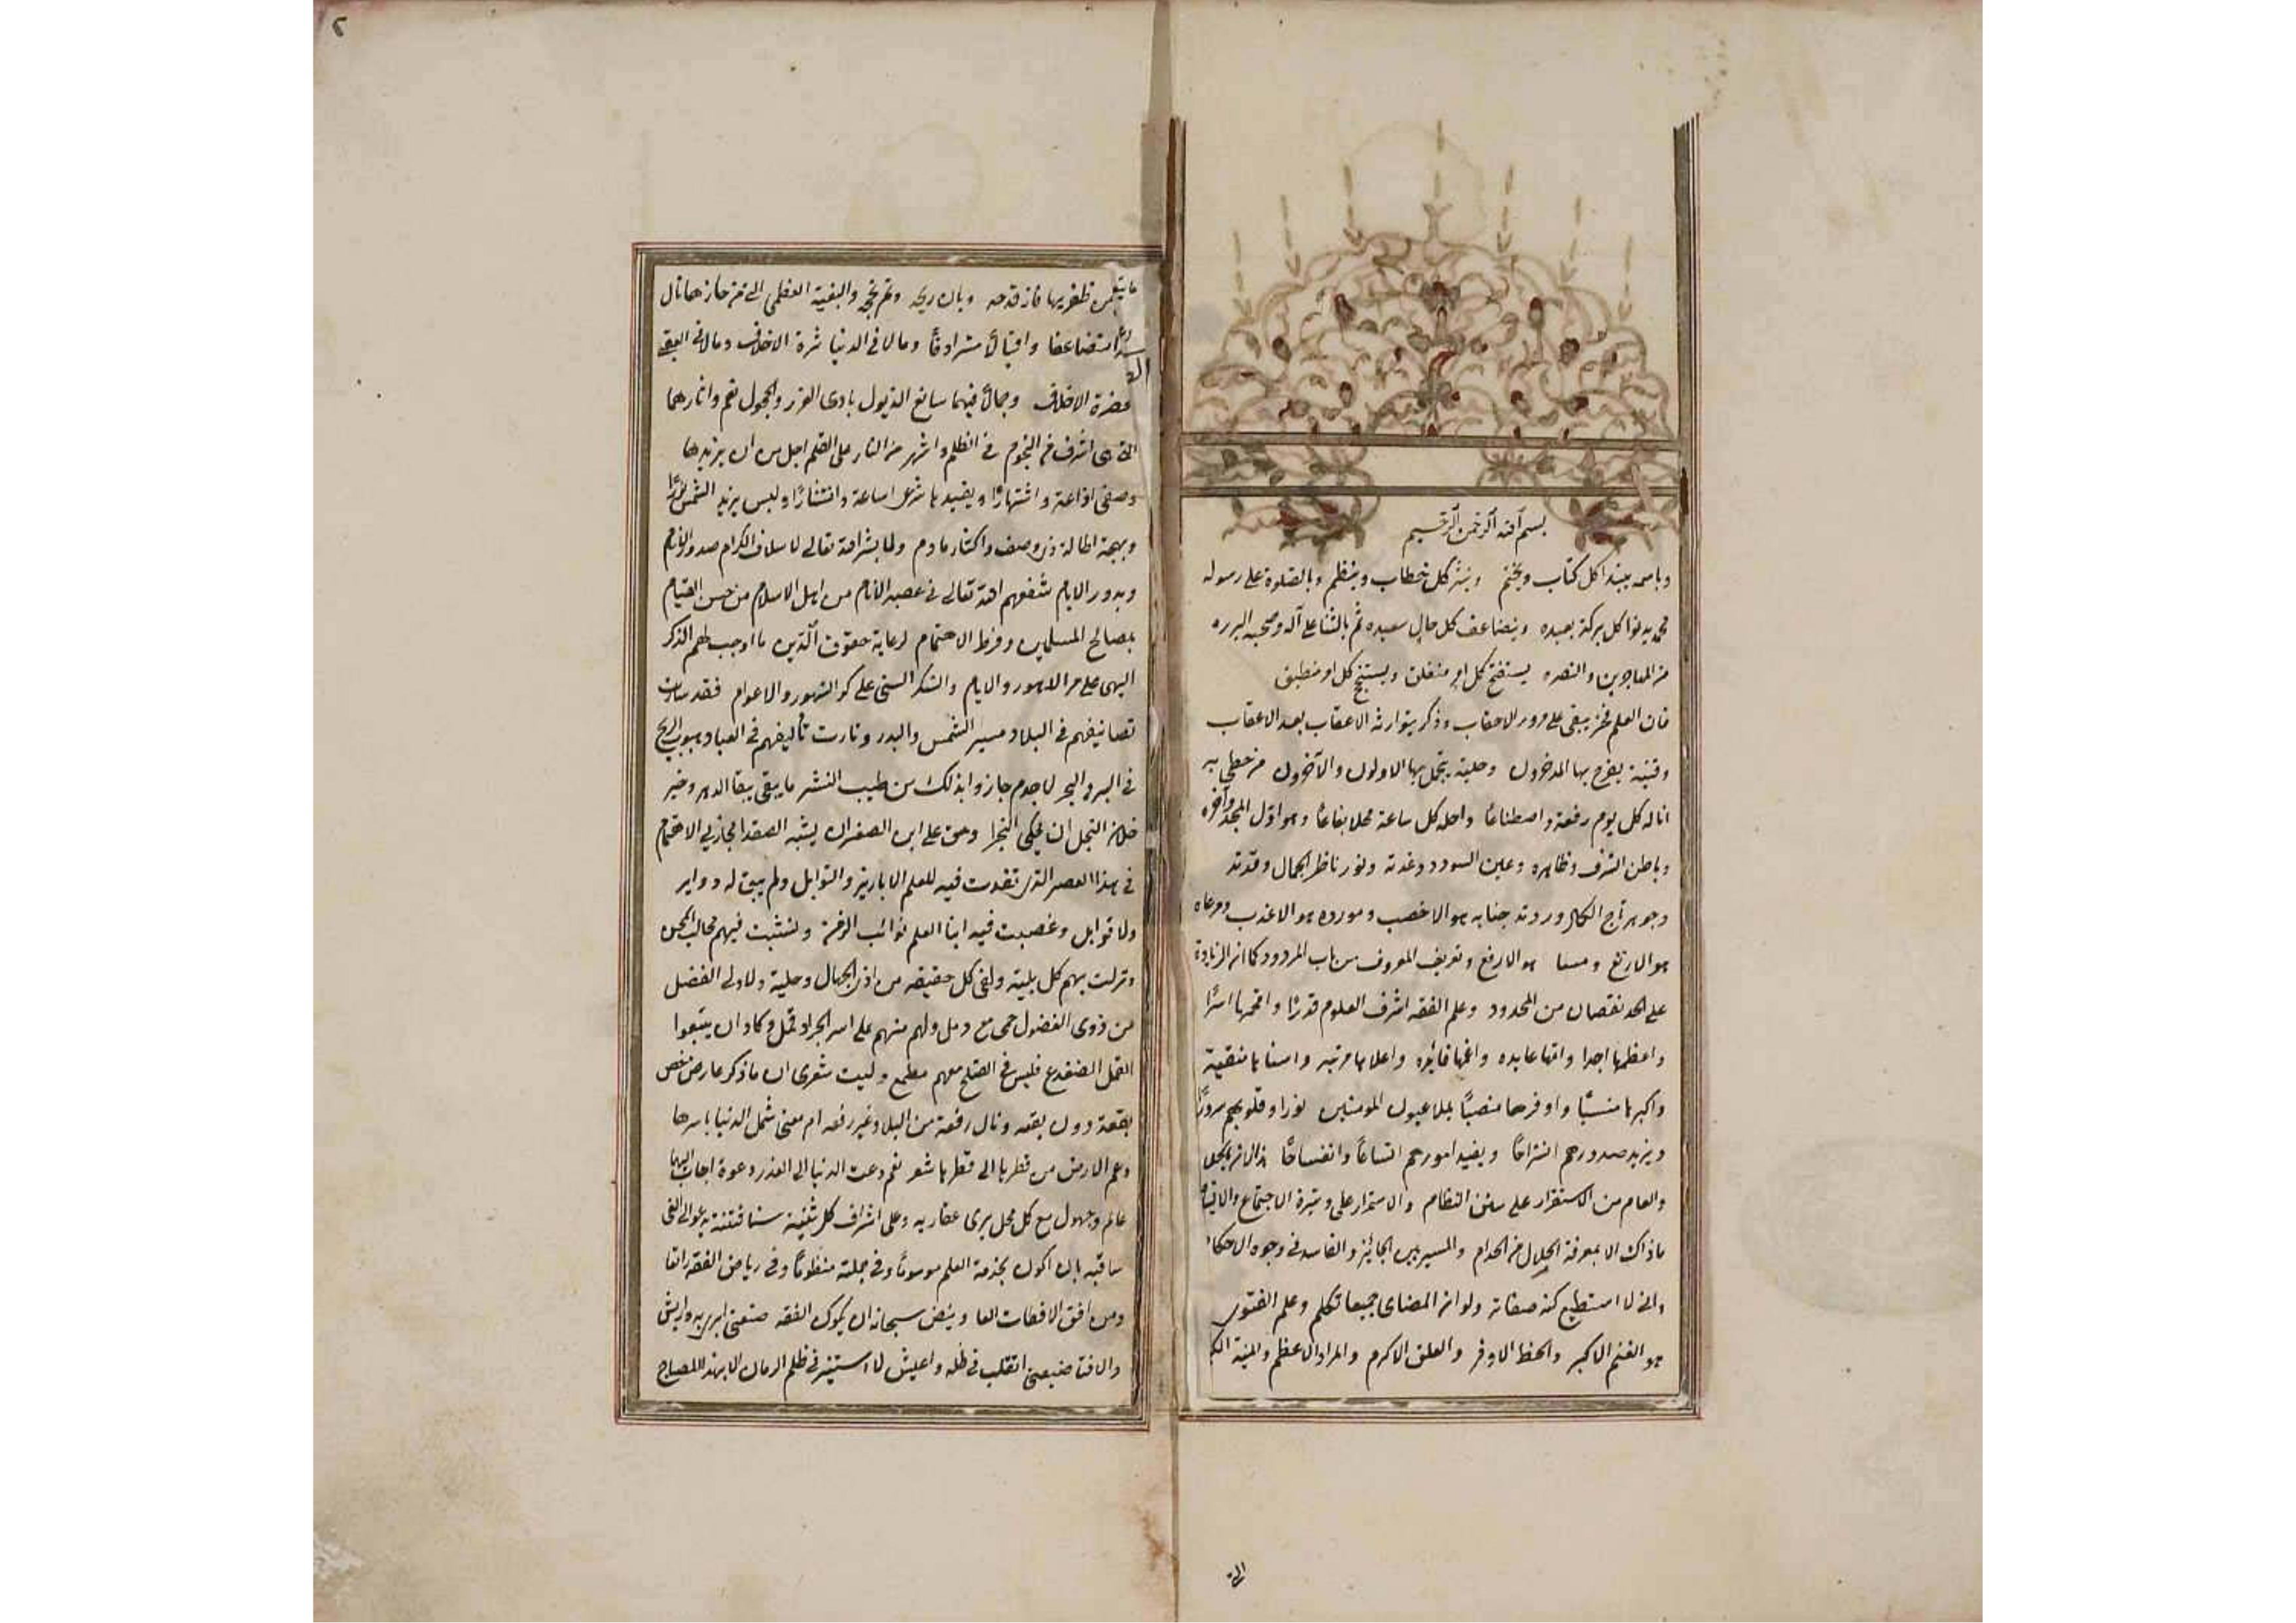 بسم الله الرحمن الرحيم
وباسمه يبتدا كل كتاب ويختتم وينثر كل خطاب وينظم وبالصلوة على رسوله
محمد كل بركة بعيده ويتضاعف كل حال سعيده ثم بالثنا على آله وصحبه البرره
من المهاجرين والنصره يستفتح كل امر منغلق ويستنتج كل امر منطبق
فان العلم فخر يبقى على مرور الاحقاب وذكر يتوارثه الاعقاب بعد الاعقاب
وقنية يفرح بها المدخرون وحلية يتجمل بها الاولون والآخرون من حظي به
اناله كل يوم رفعة واصطناعا واحله كل ساعة محلا يفاعا وهو اول المجد وآخره
وباطن الشرف وظاهره وعين السودد وغدته ونور ناظر الجمال وقدته
وجوهر تاج الكمال ودرته جنابه هو الاخصب ومورده هو الاعذب ومرعاه
هو الارتع ومسعا هو الارفع وتعريف المعروف من باب المردود كما ان الزيادة
على الحد نقصان من المحدود وعلم الفقه اشرف العلوم قدرا وافخمها اسرا
واعظمها اجرا واتمها عايده واعمها فائده واعلاها مرتبه واسناها منقبة
واكبرها منسبا واوفرها منصبا يملا عيون المومنين نورا وقلوبهم سرورا
ويزيد صدورهم انشراحا ويفيد امورهم اتساعا وانفساحا
والعام من الاستقرار على سنن النظام والاستمرار على وتيرة الاجتماع والالتيام
ماذاك الا بمعرفة الحلال من الحرام والمسير بين الجائز والفاسد في وجوه الاحكام
واني لا استطيع كنه صفاته ولو ان اعضاى جميعا تكلم وعلم الفتوى
هو الغنم الاكبر والحظ الاوفر والعلق الاكرم والمراد الاعظم والمنية
التي
٢
ظفر بها فاز قدحه وبان ريحه وتم نجحه والبغية العظمى التي من حازها نال
متضاعفا واقبالا مترادفا ومالا في الدنيا ثرة الاخلاف ومالا في العقبى
خضرة الاخلاف وجمالا فيهما سابغ الذيول بادى الغرر والحجول نعم واثارهما
التي هى اشرف من النجوم في الظلم واشهر من النار على العلم اجل من ان يزيدها
وصفى اذاعة واشتهارا ويفيدها شرعى اساعة وانتشارا وليس يزيد الشمس نورا
وبهجة اطالة ذى وصف واكثار مادح ولما يشر الله تعالى لاسلاف الكرام صدور
وبدور الايام شفعهم الله تعالى في عصبه الانام من اهل الاسلام من حسن القيام
بمصالح المسلمين وفرط الاهتمام لرعاية حقوق الدين ما اوجب لهم الذكر
البهى على مر الدهور والايام والشكر السنى على كر الشهور والاعوام فقد سارت
تصانيفهم في البلاد مسير الشمس والبدر وثارت تآليفهم في العباد هبوب الريح
في البر والبحر لا جرم جازوا بذلك من طيب النشر ما يبقى بقا الدهر وخير
خلال النجل ان يحكى النجرا وحق على ابن الصقر ان يشبه الصقرا
في هذا العصر الذى نفدت فيه للعلم الابازير والتوابل ولم يبق له دواير
ولا قوابل وغصبت فيه ابنا العلم نوائب الزمن ونشبت فيهم مخالب المحن
ونزلت بهم كل بلية ولقى كل حقيقه من اذى الجهال وحلية ولاولى الفضل
من ذوى الفضول حمى مع دمل ولهم منهم على اسر الجراد قمل وكاد ان يتبعوا
القمل الضفدع فليس في الصلح معهم مطمع وليت شعرى ان ما ذكر عارض خص
بقعة دون بقعه ونال رفعة من البلاد غير رقعه ام معنى شمل الدنيا باسرها
وعم الارض من قطرها الى قطرها شعر نعم دعت الدنيا الى الغدر دعوة اجاب اليها
عالم وجهول مع كل محل يرى عقاربه وعلى اشراف كل ثنية سنا فتنة يدعو الى الغى
ساقيه بان اكون بخدمة العلم موسوما وفي جملته منظوما وفي رياض الفقه راتعا
ومن افق الافضات العا ويقض سبحانه ان يكون الفقه صنعتى ابرى به واريش
والافتا ضيعتى اتقلب في ظله واعيش لا استنير في ظلم الزمان الا بهذا المصباح